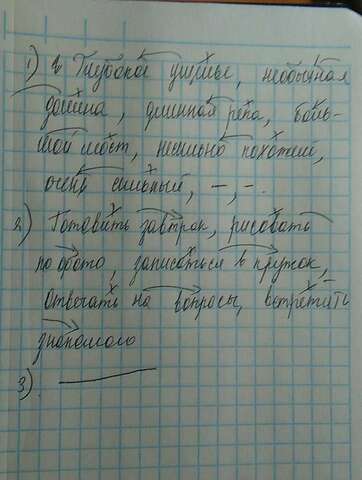 1) Глубокое ущелье, необычная
долина, длинная река, боль-
шой мост, немного похожей,
очень сильный, –, –.
2) Готовить завтрак, рисовать
по фото, записаться в кружок,
отвечать на вопросы, встретить
знакомого
3)